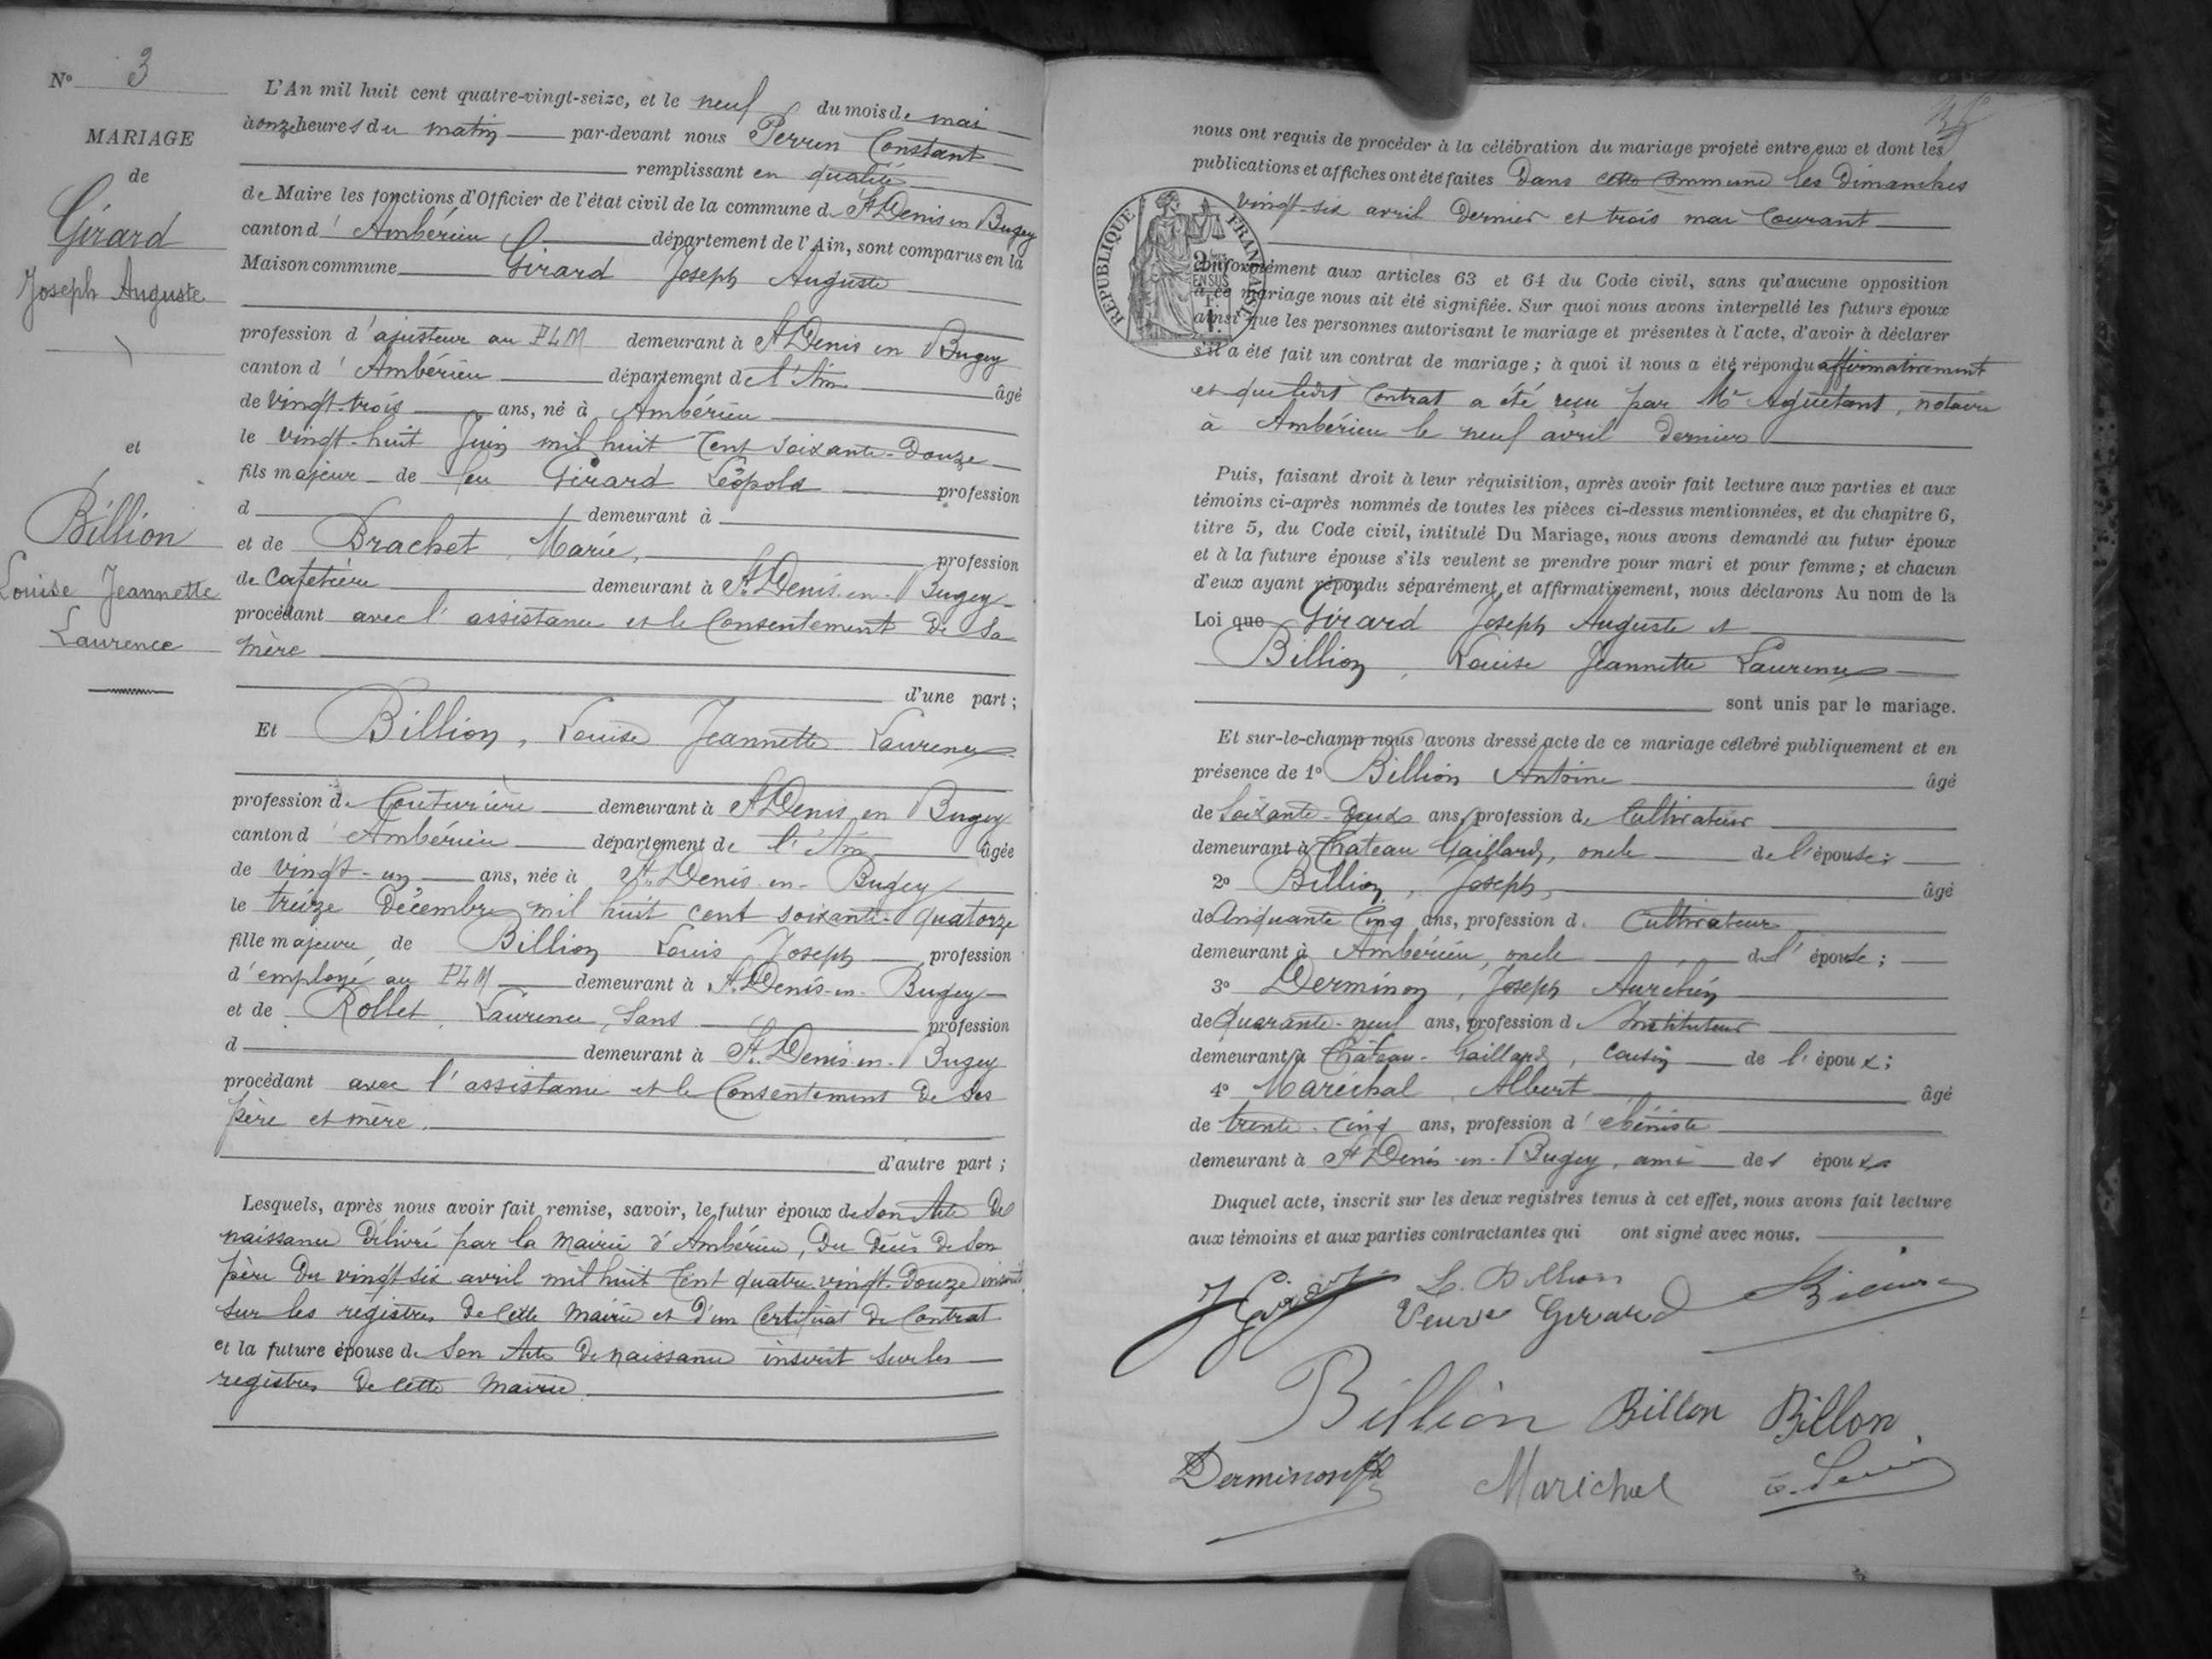 N° 3
MARIAGE
de
Girard
Joseph Auguste
et
Billion
Louise Jeannette
Laurence
L'An mil huit cent quatre-vingt-seize, et le neuf du mois de mai
à onze heures du matin par-devant nous Perrin Constant
remplissant en qualité
de Maire les fonctions d'Officier de l'état civil de la commune de St Denis en Bugey
canton d'Ambérieu département de l'Ain, sont comparus en la
Maison commune Girard Joseph Auguste
profession d'ajusteur au PLM demeurant à St Denis en Bugey
canton d'Ambérieu département de l'Ain âgé
de vingt-trois ans, né à Ambérieu
le vingt-huit Juin mil huit Cent soixante-Douze
fils majeur de feu Girard Léopold profession
d demeurant à
et de Brachet, Marie, profession
de cafetière demeurant à St Denis-en-Bugey
procédant avec l'assistance et le Consentement de sa
mère
d'une part;
Et Billion, Louise Jeannette Laurence
profession de Couturière demeurant à St Denis en Bugey
canton d'Ambérieu département de l'Ain âgée
de vingt-un ans, née à St Denis-en-Bugey
le treize Décembre mil huit cent soixante-quatorze
fille majeure de Billion Louis Joseph profession
d'employé au PLM demeurant à St Denis-en-Bugey
et de Rollet, Laurence, sans profession
d demeurant à St Denis-en-Bugey
procédant avec l'assistance et le Consentement de ses
père et mère.
d'autre part;
Lesquels, après nous avoir fait remise, savoir, le futur époux de son Acte de
naissance délivré par la mairie d'Ambérieu, du décès de son
père du vingt six avril mil huit Cent quatre-vingt-Douze inscrit
sur les registres de cette mairie et d'un Certificat de Contrat
et la future épouse de son Acte de naissance inscrit sur les
registres de cette mairie
nous ont requis de procéder à la célébration du mariage projeté entre eux et dont les
publications et affiches ont été faites dans cette commune les Dimanches
vingt-six avril dernier et trois mai courant
REPUBLIQUE FRANÇAISE
conformément aux articles 63 et 64 du Code civil, sans qu'aucune opposition
à ce mariage nous ait été signifiée. Sur quoi nous avons interpellé les futurs époux
ainsi que les personnes autorisant le mariage et présentes à l'acte, d'avoir à déclarer
s'il a été fait un contrat de mariage; à quoi il nous a été répondu affirmativement
et que ledit Contrat a été reçu par Me Aguétant, notaire
à Ambérieu le neuf avril dernier
Puis, faisant droit à leur réquisition, après avoir fait lecture aux parties et aux
témoins ci-après nommés de toutes les pièces ci-dessus mentionnées, et du chapitre 6,
titre 5, du Code civil, intitulé Du Mariage, nous avons demandé au futur époux
et à la future épouse s'ils veulent se prendre pour mari et pour femme; et chacun
d'eux ayant répondu séparément et affirmativement, nous déclarons Au nom de la
Loi que Girard Joseph Auguste et
Billion, Louise Jeannette Laurence
sont unis par le mariage.
Et sur-le-champ nous avons dressé acte de ce mariage célébré publiquement et en
présence de 1° Billion Antoine âgé
de soixante-deux ans, profession de Cultivateur
demeurant à Château Gaillard, oncle de l'épouse;
2° Billion, Joseph, âgé
de Cinquante Cinq ans, profession d. Cultivateur
demeurant à Ambérieu, oncle de l'épouse;
3° Derminon, Joseph Aurélien
de Quarante-neuf ans, profession d'Instituteur
demeurant à Château-Gaillard, cousin de l'époux;
4° Maréchal, Albert âgé
de trente-cinq ans, profession d'ébéniste
demeurant à St Denis-en-Bugey, ami des époux
Duquel acte, inscrit sur les deux registres tenus à cet effet, nous avons fait lecture
aux témoins et aux parties contractantes qui ont signé avec nous.
J Girard L. Billion
Veuve Girard
Billion Billon Billon
Derminon Marichal